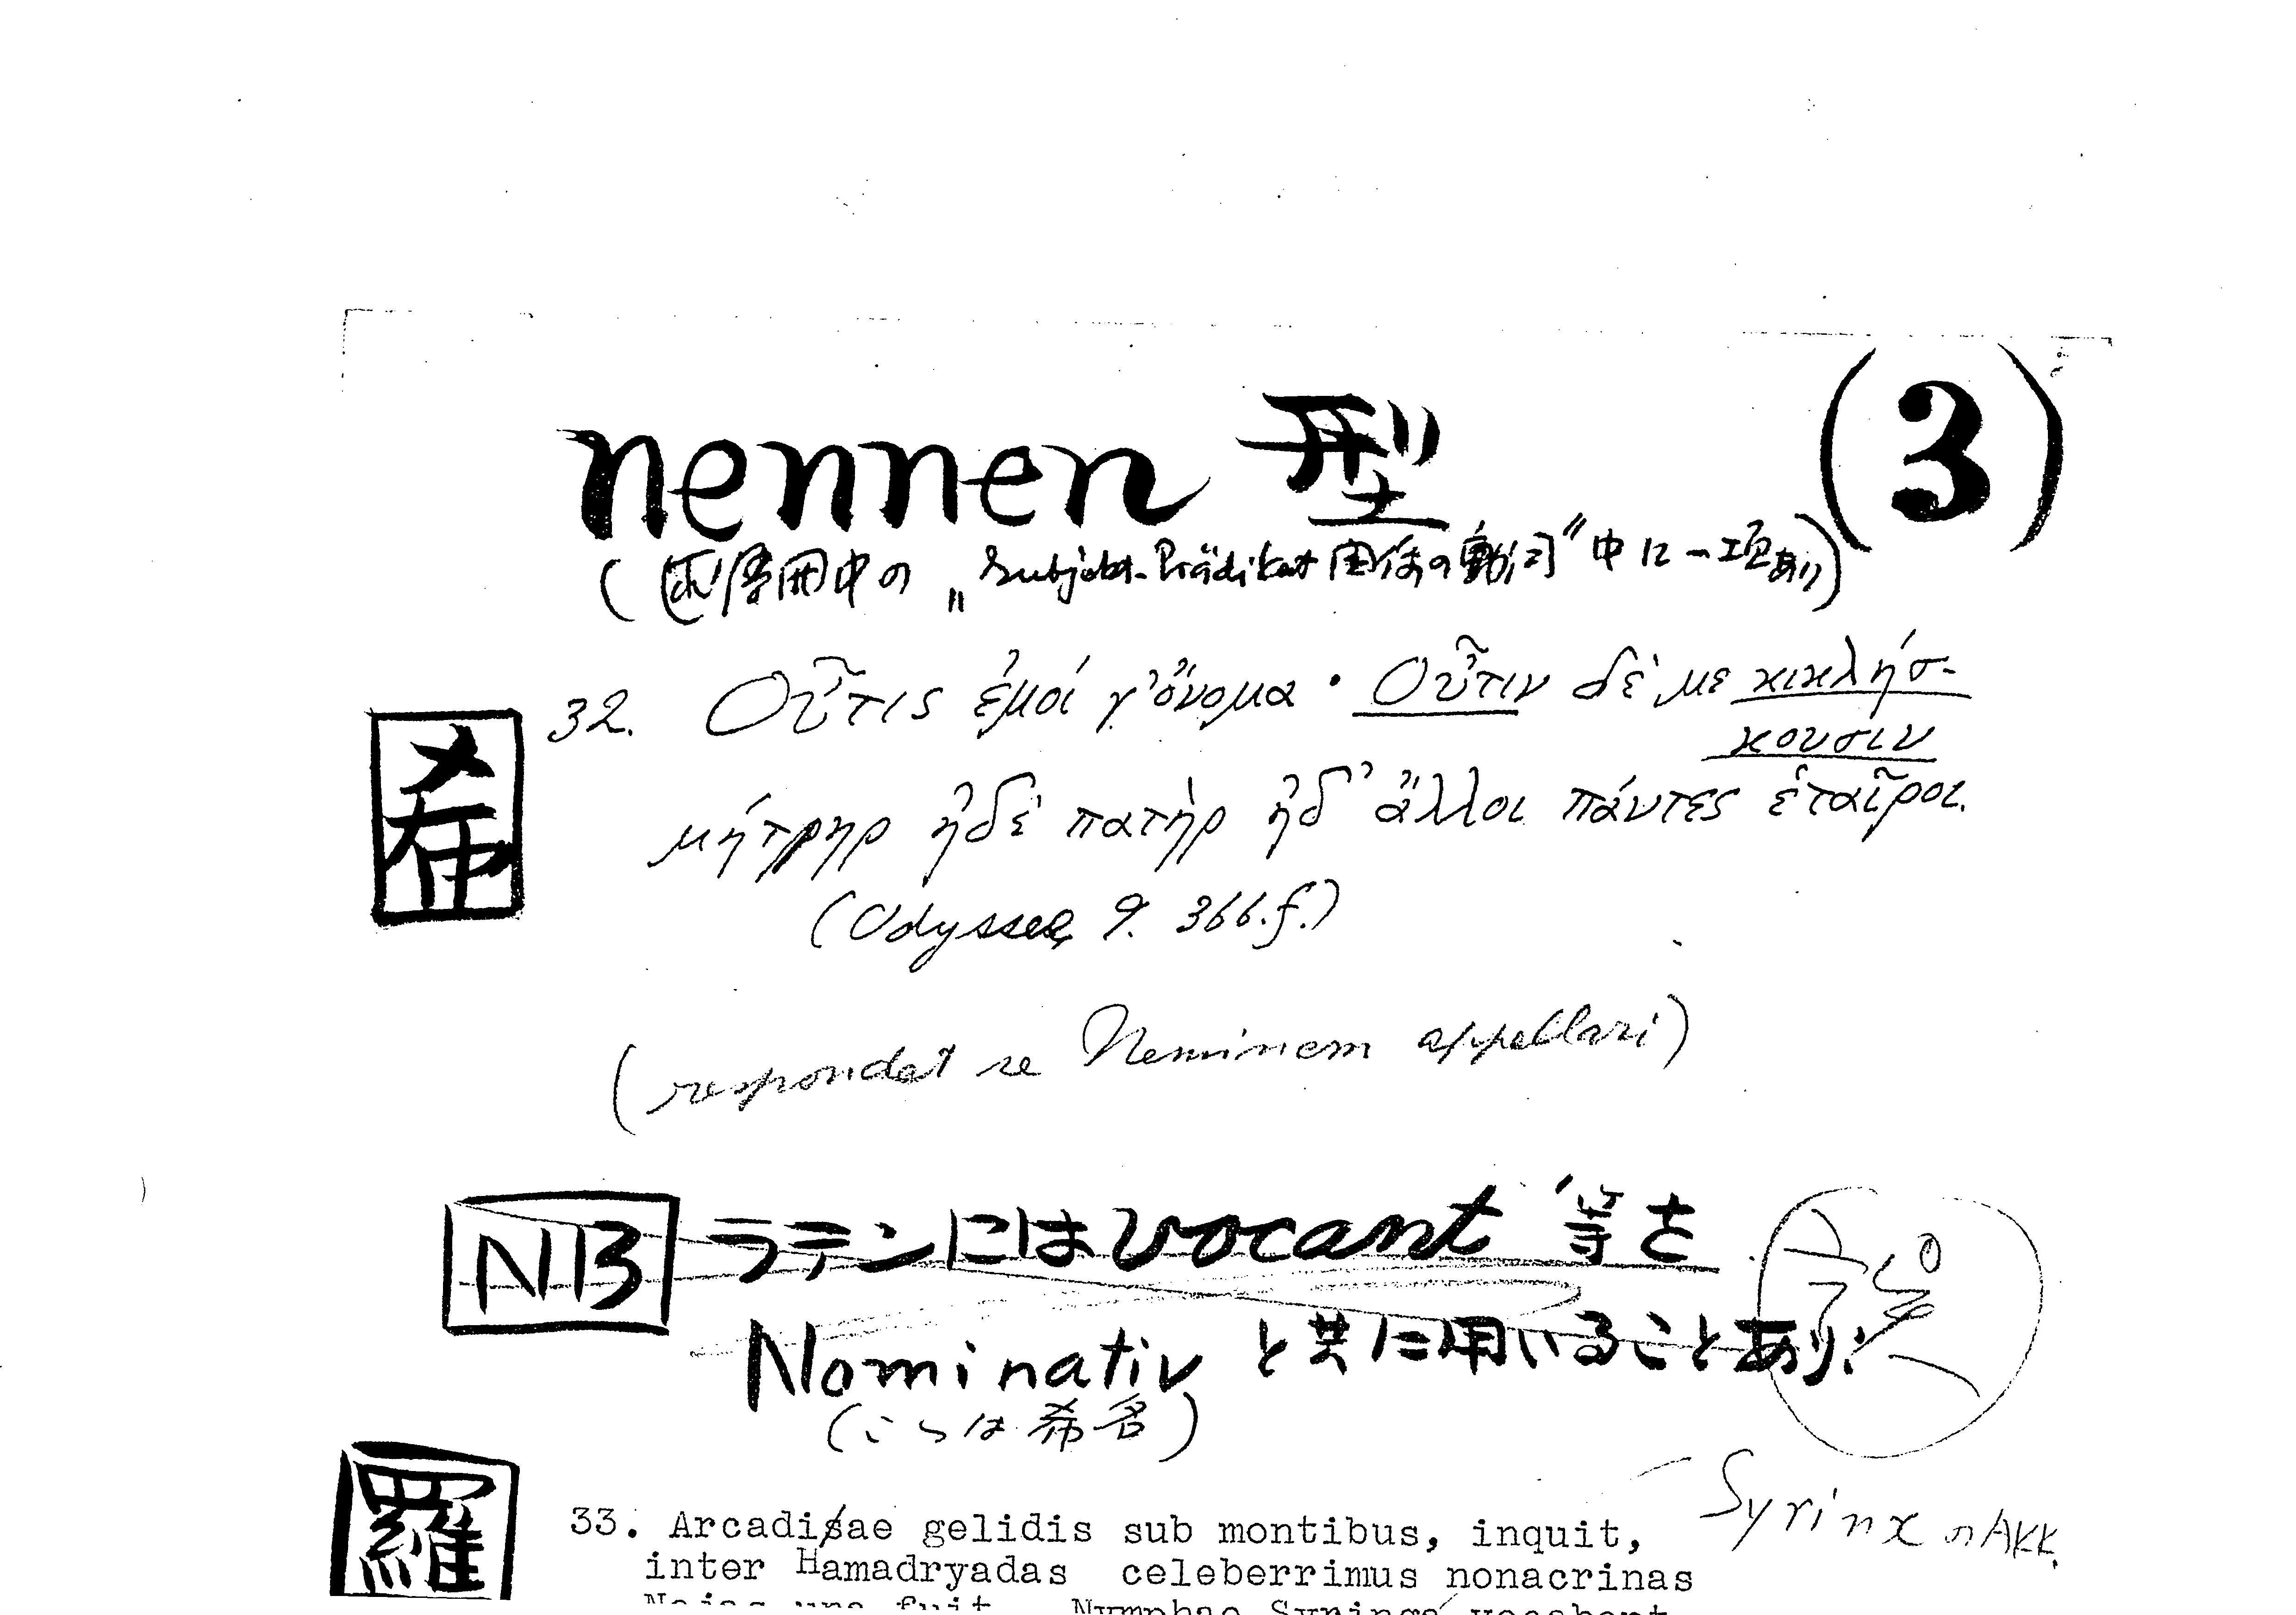 nennen 型 (3)
( 中の „Subjekt-Prädikat 関係の動詞" 中に一項あり)
希
32. Οὖτις ἐμοί γ' ὄνομα · Οὖτιν δέ με κικλήσ-
κουσιν
μήτρηρ ἠδὲ πατὴρ ἠδ' ἄλλοι πάντες ἑταῖροι.
(Odyssee, 9. 366.f.)
(respondet se Neminem appellari)
NB ラテンには vocant 等を
Nominativ と共に用いることあり:
は希
羅
Syrinx のAkk.
33. Arcadisae gelidis sub montibus, inquit,
inter Hamadryadas celeberrimus nonacrinas
Naias una fuit. Nymphae Syringa vocabant